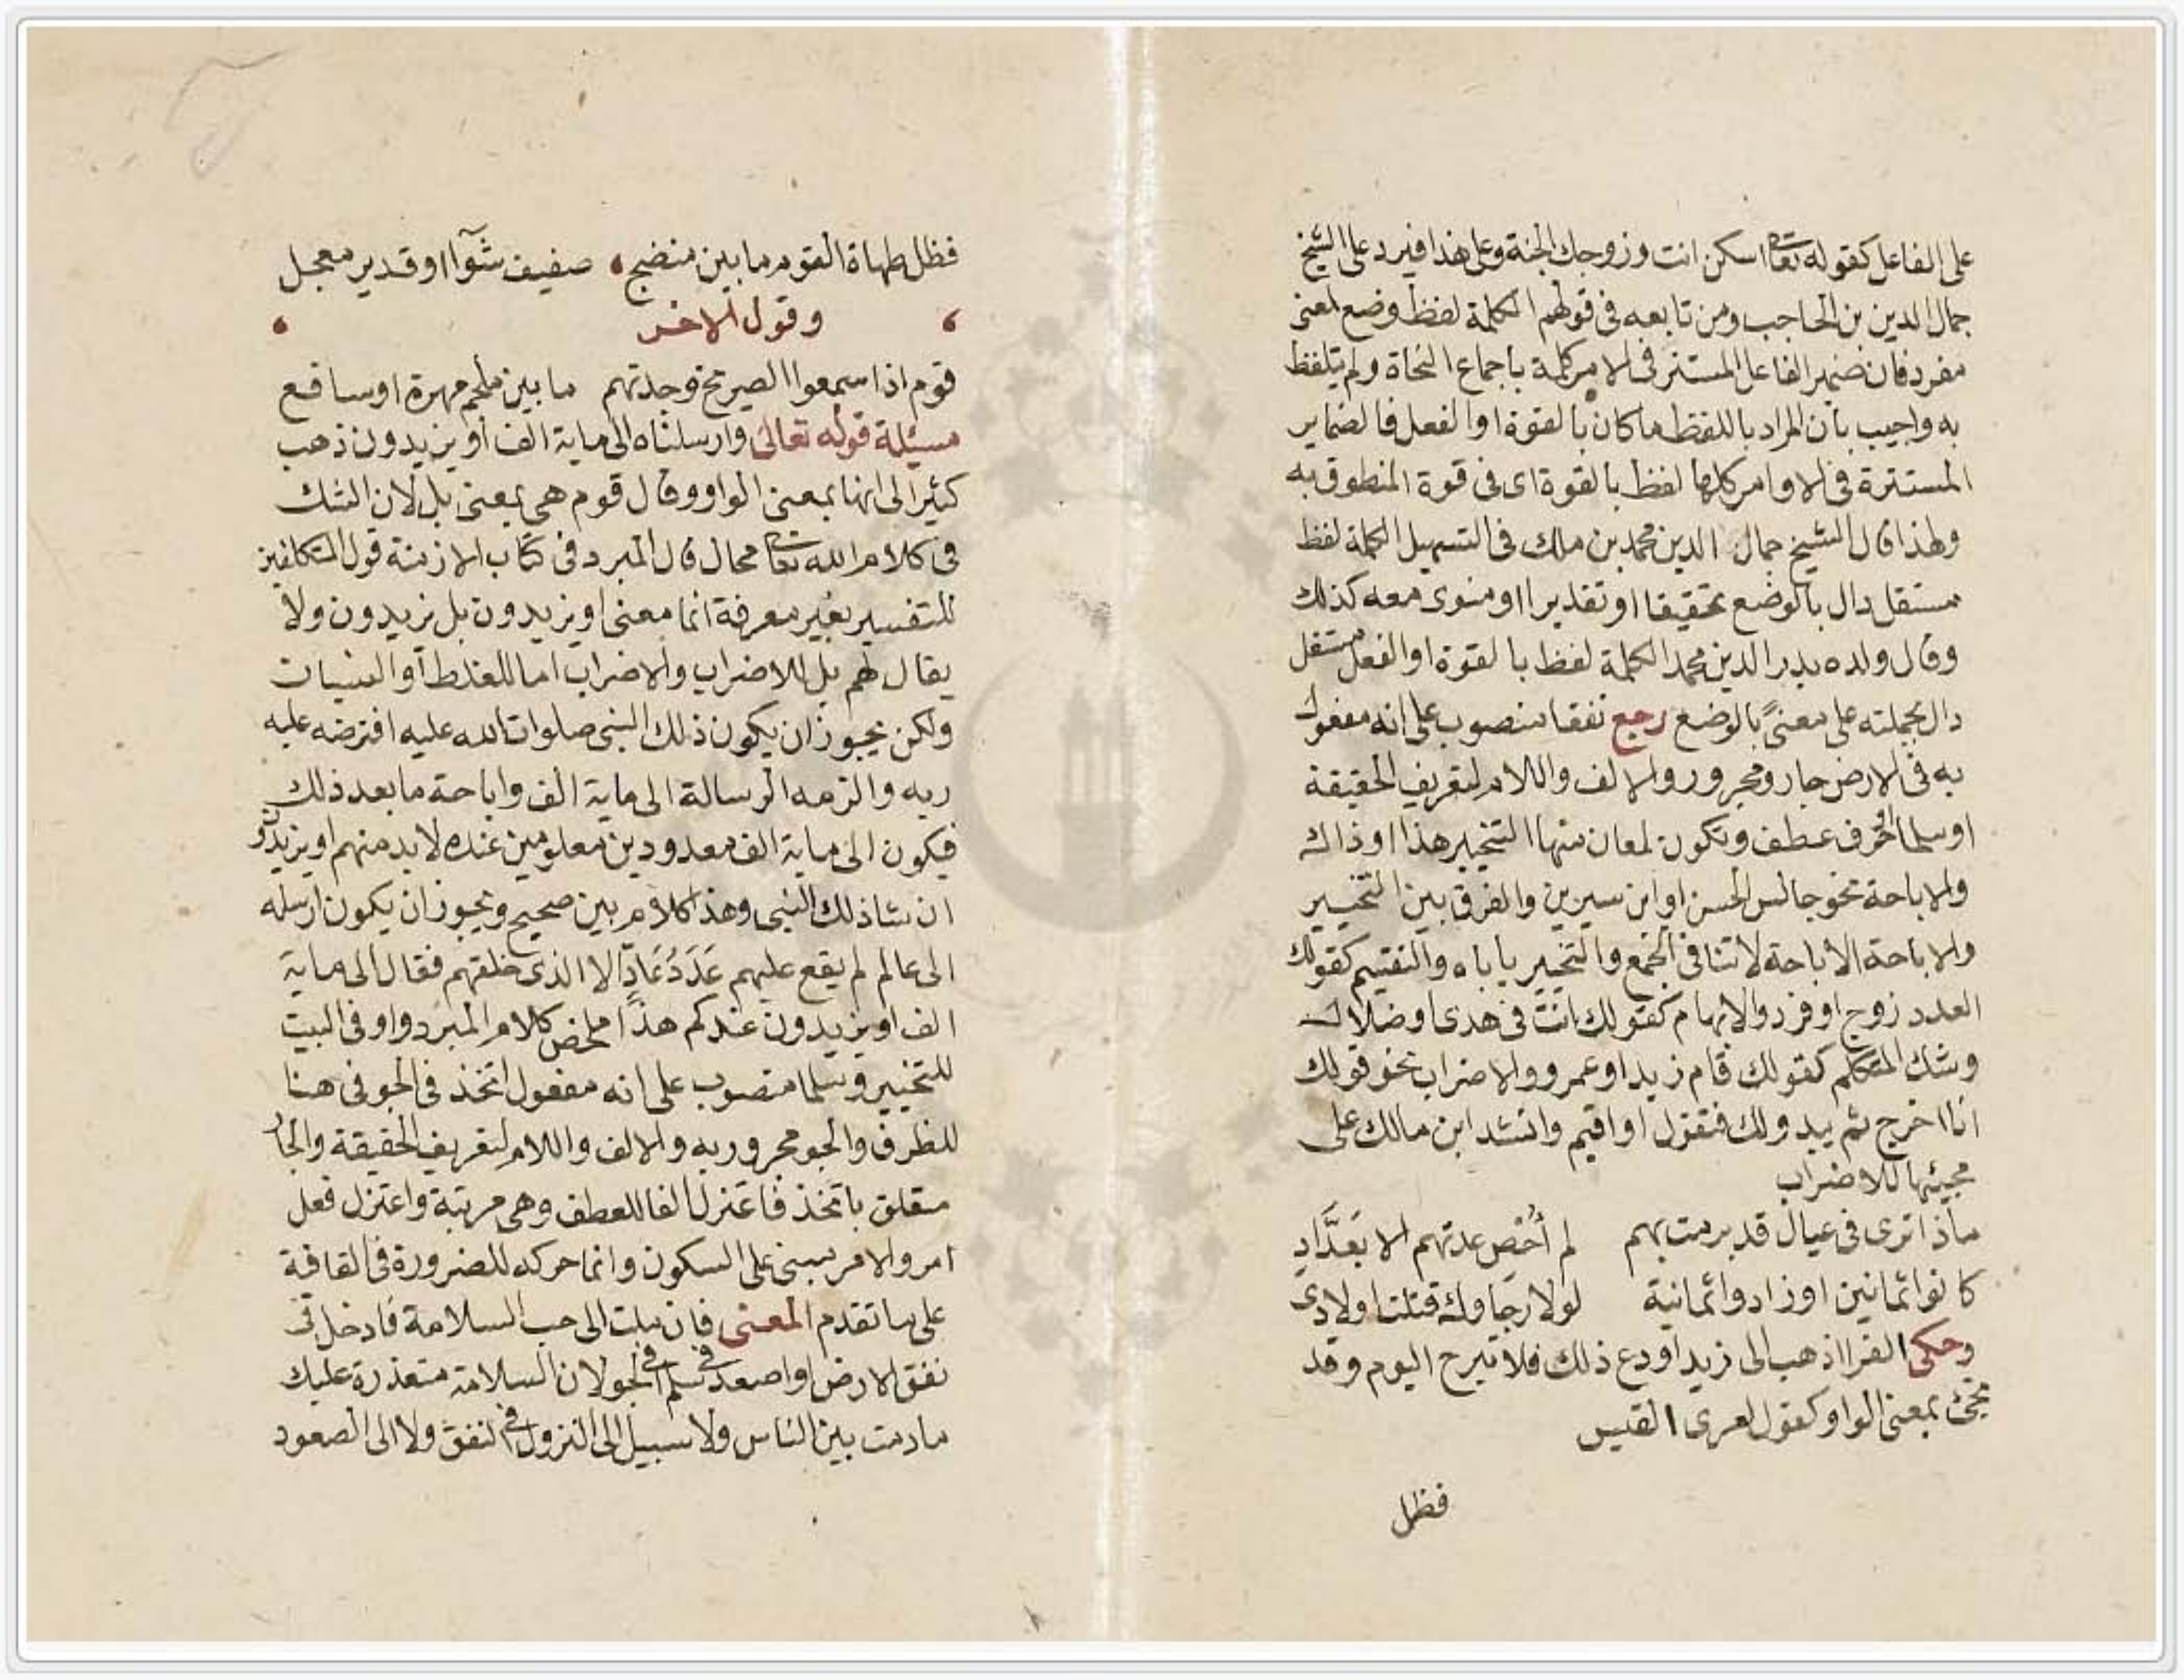 على الفاعل كقوله تعالى اسكن انت وزوجك الجنة وعلى هذا فيرد على الشيخ
جمال الدين بن الحاجب ومن تابعه في قولهم الكلمة لفظ وضع لمعنى
مفرد فان ضمير الفاعل المستتر في الامر كلمة باجماع النحاة ولم يتلفظ
به واجيب بان المراد باللفظ ما كان بالقوة او الفعل فالضماير
المستترة في الاوامر كلها لفظ بالقوة اى في قوة المنطوق به
ولهذا قال الشيخ جمال الدين محمد بن مالك في التسهيل الكلمة لفظ
مستقل دال بالوضع تحقيقا او تقديرا او منوى معه كذلك
وقال ولده بدر الدين محمد الكلمة لفظ بالقوة او الفعل مستقل
دال بجملته على معنىً بالوضع رجع نفقا منصوب على انه مفعول
به في الارض جار ومجرور والالف واللام لتعريف الحقيقة
او سلما الحرف عطف وتكون لمعان منها التخيير هذا او ذاك
والاباحة نحو جالس الحسن او ابن سيرين والفرق بين التخيير
والاباحة الاباحة لا تنافى الجمع والتخيير ياباه والتقسيم كقولك
العدد زوج او فرد والابهام كقولك انت في هدى او ضلال
وشك المتكلم كقولك قام زيد او عمرو والاضراب نحو قولك
انا اخرج ثم يبدو لك فتقول او اقيم وانشد ابن مالك على
مجيئها للاضراب
ماذا ترى في عيال قد برمت بهم لم أُحْصِ عدتهم الا بعَدَّادِ
كانوا ثمانين او زادوا ثمانية لولا رجاوك قتلت اولادى
وحكى الفرا اذهب الى زيد او دع ذلك فلا تبرح اليوم وقد
تجئ بمعنى الواو كقول امرى القيس
فظل
فظل طهاة القوم ما بين منضج صفيف شوآا او قدير معجل
وقول الاخر
قوم اذا سمعوا الصريخ وجدتهم ما بين ملجم مهره او سافع
مسئلة قوله تعالى وارسلناه الى ماية الف أو يزيدون ذهب
كثير الى انها بمعنى الواو وقال قوم هى بمعنى بل لان الشك
في كلام الله تعالى محال قال المبرد في كتاب الازمنة قول
للتفسير بغير معرفة انما معنى او يزيدون بل يزيدون ولا
يقال لهم بل للاضراب والاضراب اما للغلط أو النسيان
ولكن يجوز ان يكون ذلك النبى صلوات الله عليه افترضه عليه
ربه والزمه الرسالة الى ماية الف واباحة ما بعد ذلك
فيكون الى ماية الف معدودين معلومين عنده لا بد منهم او يزيدون
ان شا ذلك النبى وهذا كلام بين صحيح ويجوز ان يكون ارسله
الى عالم لم يقع عليهم عَدَدُ عَادٍّ الا الذى خلقهم فقال الى ماية
الف او يزيدون عندكم هذا ملخص كلام المبرد واو في البيت
للتخيير وسلما منصوب على انه مفعول اتخذ في الجو في هنا
للظرف والجو مجرور به والالف واللام لتعريف الحقيقة والجار
متعلق باتخذ فاعتزل الفا للعطف وهى مرتبة واعتزل فعل
امر والامر مبنى على السكون وانما حركه للضرورة في القافة
على ما تقدم المعنى فان ملت الى حب السلامة فادخل في
نفق الارض او اصعد في سلم في الجو لان السلامة متعذرة عليك
ما دمت بين الناس ولا سبيل الى النزول في النفق ولا الى الصعود